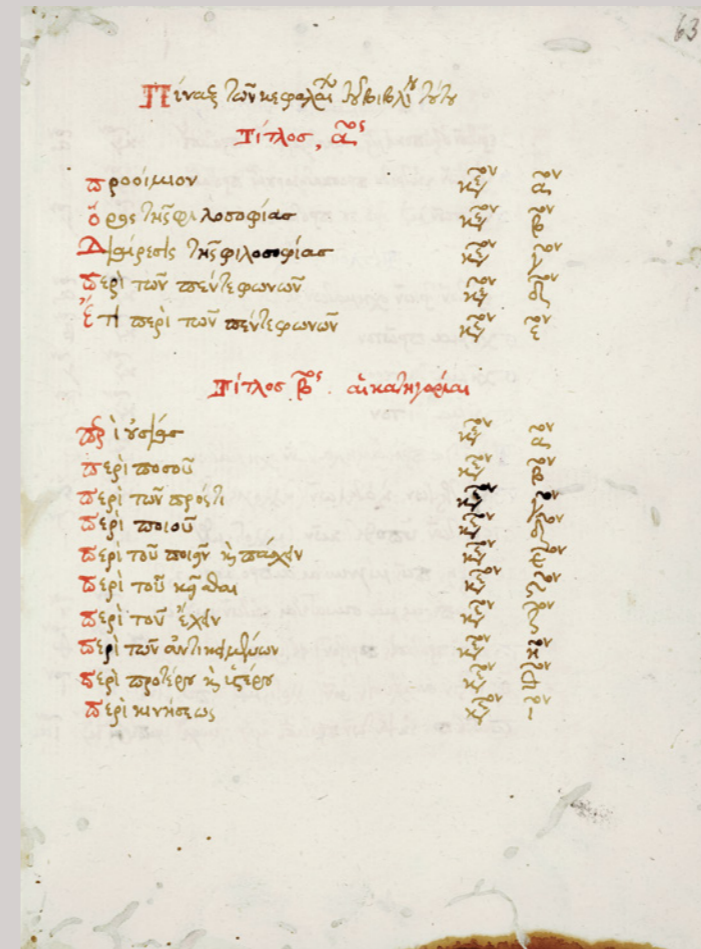 63
Πίναξ τῶν κεφαλαί τοῦ βιβλίου τούτου
Τίτλος, αος
προοίμιον κεφον αον
ὅρος τῆς φιλοσοφίας κεφον βον
Διαίρεσις τῆς φιλοσοφίας κεφον γον
περὶ τῶν πέντε φωνῶν κεφον δον
Ἔτι περὶ τῶν πέντε φωνῶν κεφον εον
Τίτλος βος. αἱ κατηγορίαι
περὶ οὐσίας κεφον αον
περὶ ποσοῦ κεφον βον
περὶ τῶν πρός τι κεφον γον
περὶ ποιοῦ κεφον δον
περὶ τοῦ ποιεῖν καὶ πάσχειν κεφον εον
περὶ τοῦ κεῖσθαι κεφον ϛον
περὶ τοῦ ἔχειν κεφον ζον
περὶ τῶν ἀντικειμένων κεφον ηον
περὶ προτέρου καὶ ὑστέρου κεφον θον
περὶ κινήσεως κεφον ιον